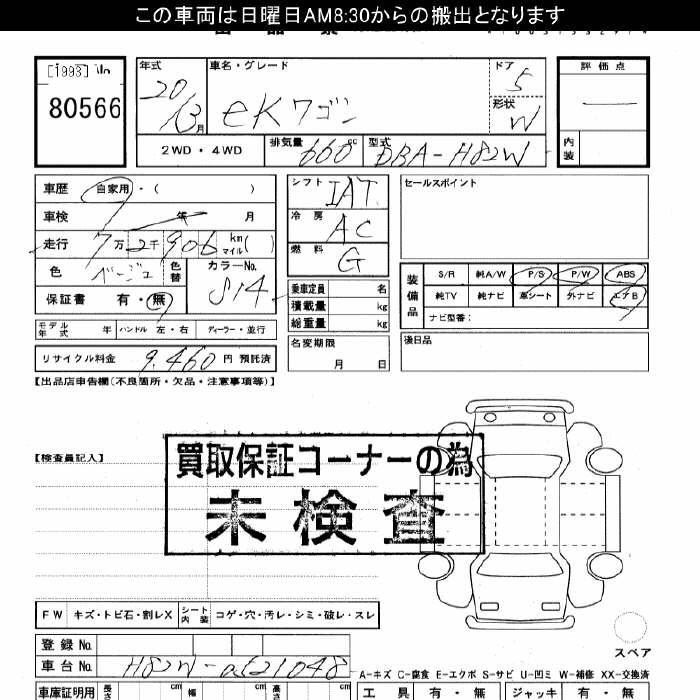 この車両は日曜日AM8:30からの搬出となります
[1993]
80566
年式 車名・グレード ドア 評価点
20/3月 eKワゴン 5
形状 W
2WD・4WD 排気量 660cc 型式 DBA-H82W 内装
車歴 自家用・( ) シフト IAT セールスポイント
車検 年 月 冷房 AC
走行 7万2千906 km マイル( ) 燃料 G
色 ベージュ 色替 カラーNo. S14
保証書 有・無
乗車定員 名
積載量 kg
総重量 kg
装備品 S/R 純A/W P/S P/W ABS
純TV 純ナビ 革シート 外ナビ エアB
ナビ型番:
モデル年式 年 ハンドル 左・右 ディーラー・並行
名変期限 月 日
後日品
リサイクル料金 9,460 円 預託済
【出品店申告欄(不良箇所・欠品・注意事項等)】
【検査員記入】
買取保証コーナーの為
未検査
FW キズ・トビ石・割レX シート内装 コゲ・穴・汚レ・シミ・破レ・スレ
スペア
登録No.
車台No. H82W-
A-キズ C-腐食 E-エクボ S-サビ U-凹ミ W-補修 XX-交換済
車庫証明用 長さ cm 幅 cm 高さ cm
工具 有・無 ジャッキ 有・無